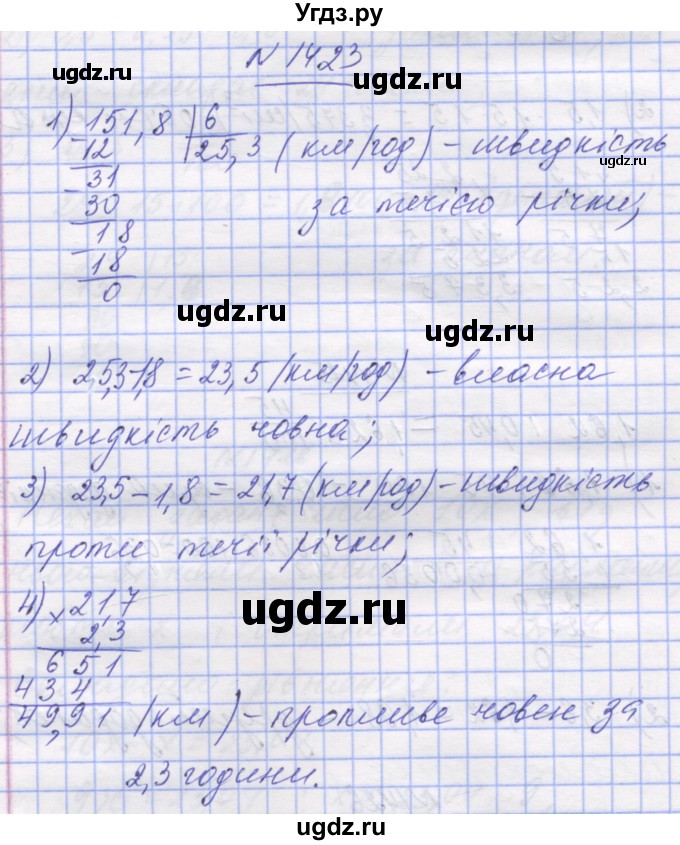 Угдз.ру
N 1423
ugdz.ru
ugdz.ru
1) 151,8 | 6
12 25,3 (км/год) - швидкість
ugdz.ru
31
30 за течією річки;
18
18
0
ugdz.ru
ugdz.ru
2) 25,3-1,8 = 23,5 (км/год) - власна
швидкість човна;
3) 23,5 - 1,8 = 21,7 (км/год) - швидкість
проти течії річки;
ugdz.ru
4) × 21,7
2,3
651
434
49,91 (км) - пропливе човен за
2,3 години.
ugdz.ru
ugdz.ru